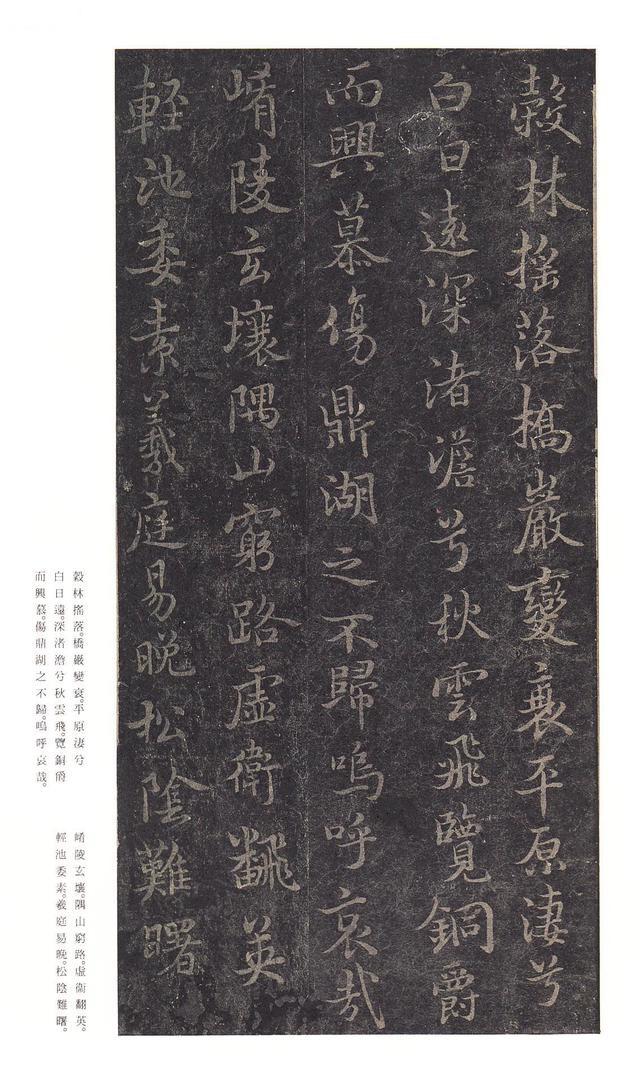 穀林搖落橋巖變衰平原淒兮
白日遠深渚澹兮秋雲飛覽銅爵
而興慕傷鼎湖之不歸嗚呼哀哉
崤陵玄壤隅山窮路虛衛飜英
輊池委素羲庭易晚松陰難曙
穀林搖落。橋巖變衰。平原淒兮
白日遠。深渚澹兮秋雲飛。覽銅爵
而興慕。傷鼎湖之不歸。嗚呼哀哉。
崤陵玄壤。隅山窮路。虛衛翻英。
輊池委素。羲庭易晚。松陰難曙。